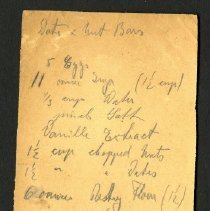 Date & Nut Bars
5 Eggs
11 ounce Sugar (1½ cups)
⅓ cup Water
pinch Salt
Vanille Extract
1½ cup chopped Nuts
1½ " " Dates
6 ounces Pastry Flour (1½)